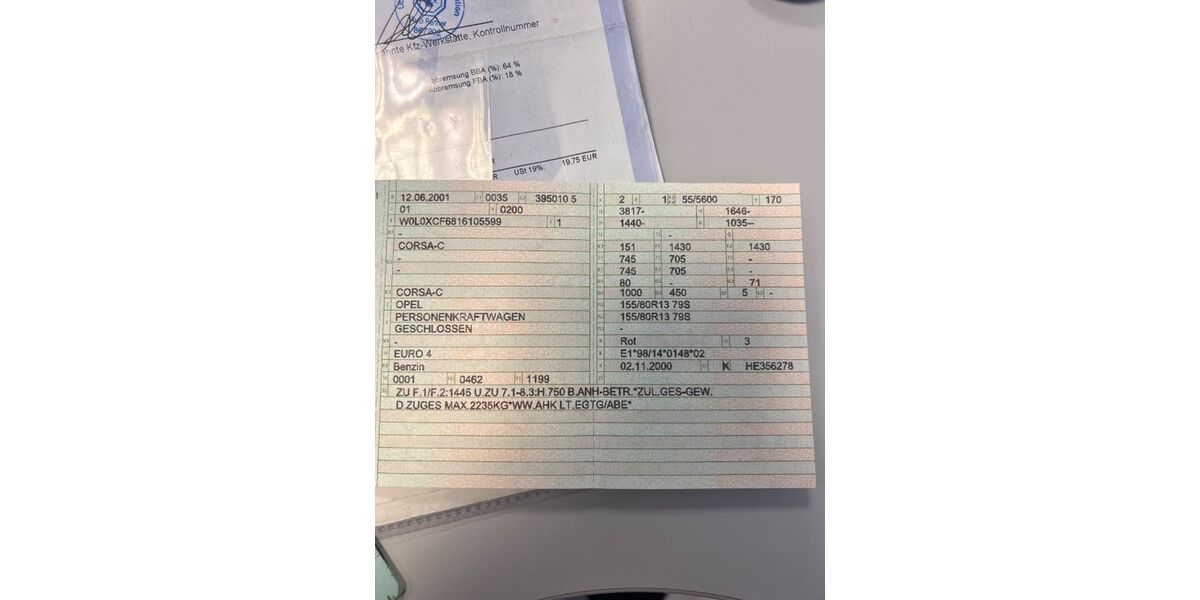 Kfz-Werkstätte, Kontrollnummer
bremsung BBA (%): 64 %
Abbremsung FBA (%): 18 %
USt 19%: 19,75 EUR
12.06.2001 0035 395010 5
01 0200
W0L0XCF6816105599 1
-
CORSA-C
-
-
CORSA-C
OPEL
PERSONENKRAFTWAGEN
GESCHLOSSEN
-
EURO 4
Benzin
0001 0462 1199
2 1 55/5600 170
3817- 1646-
1440- 1035--
-
151 1430 1430
745 705 -
745 705 -
80 - 71
1000 450 5 -
155/80R13 79S
155/80R13 79S
-
Rot 3
E1*98/14*0148*02
02.11.2000 K HE356278
ZU F.1/F.2:1445 U.ZU 7.1-8.3:H.750 B.ANH-BETR.*ZUL.GES-GEW.
D.ZUGES MAX.2235KG*WW.AHK LT.EGTG/ABE*